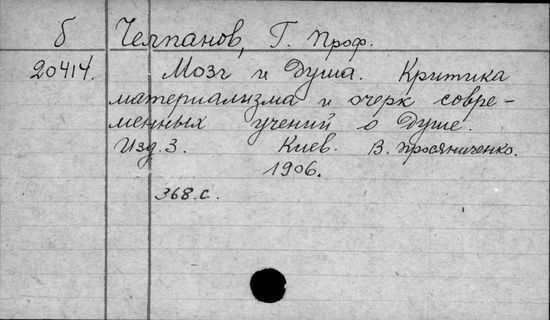 б Челпанов, Г. Проф.
20414. Мозг и Душа. Критика
материализма и очерк совре-
менных учений о Душе.
Изд. 3. Киев. В. Просяниченко.
1906.
368.с.